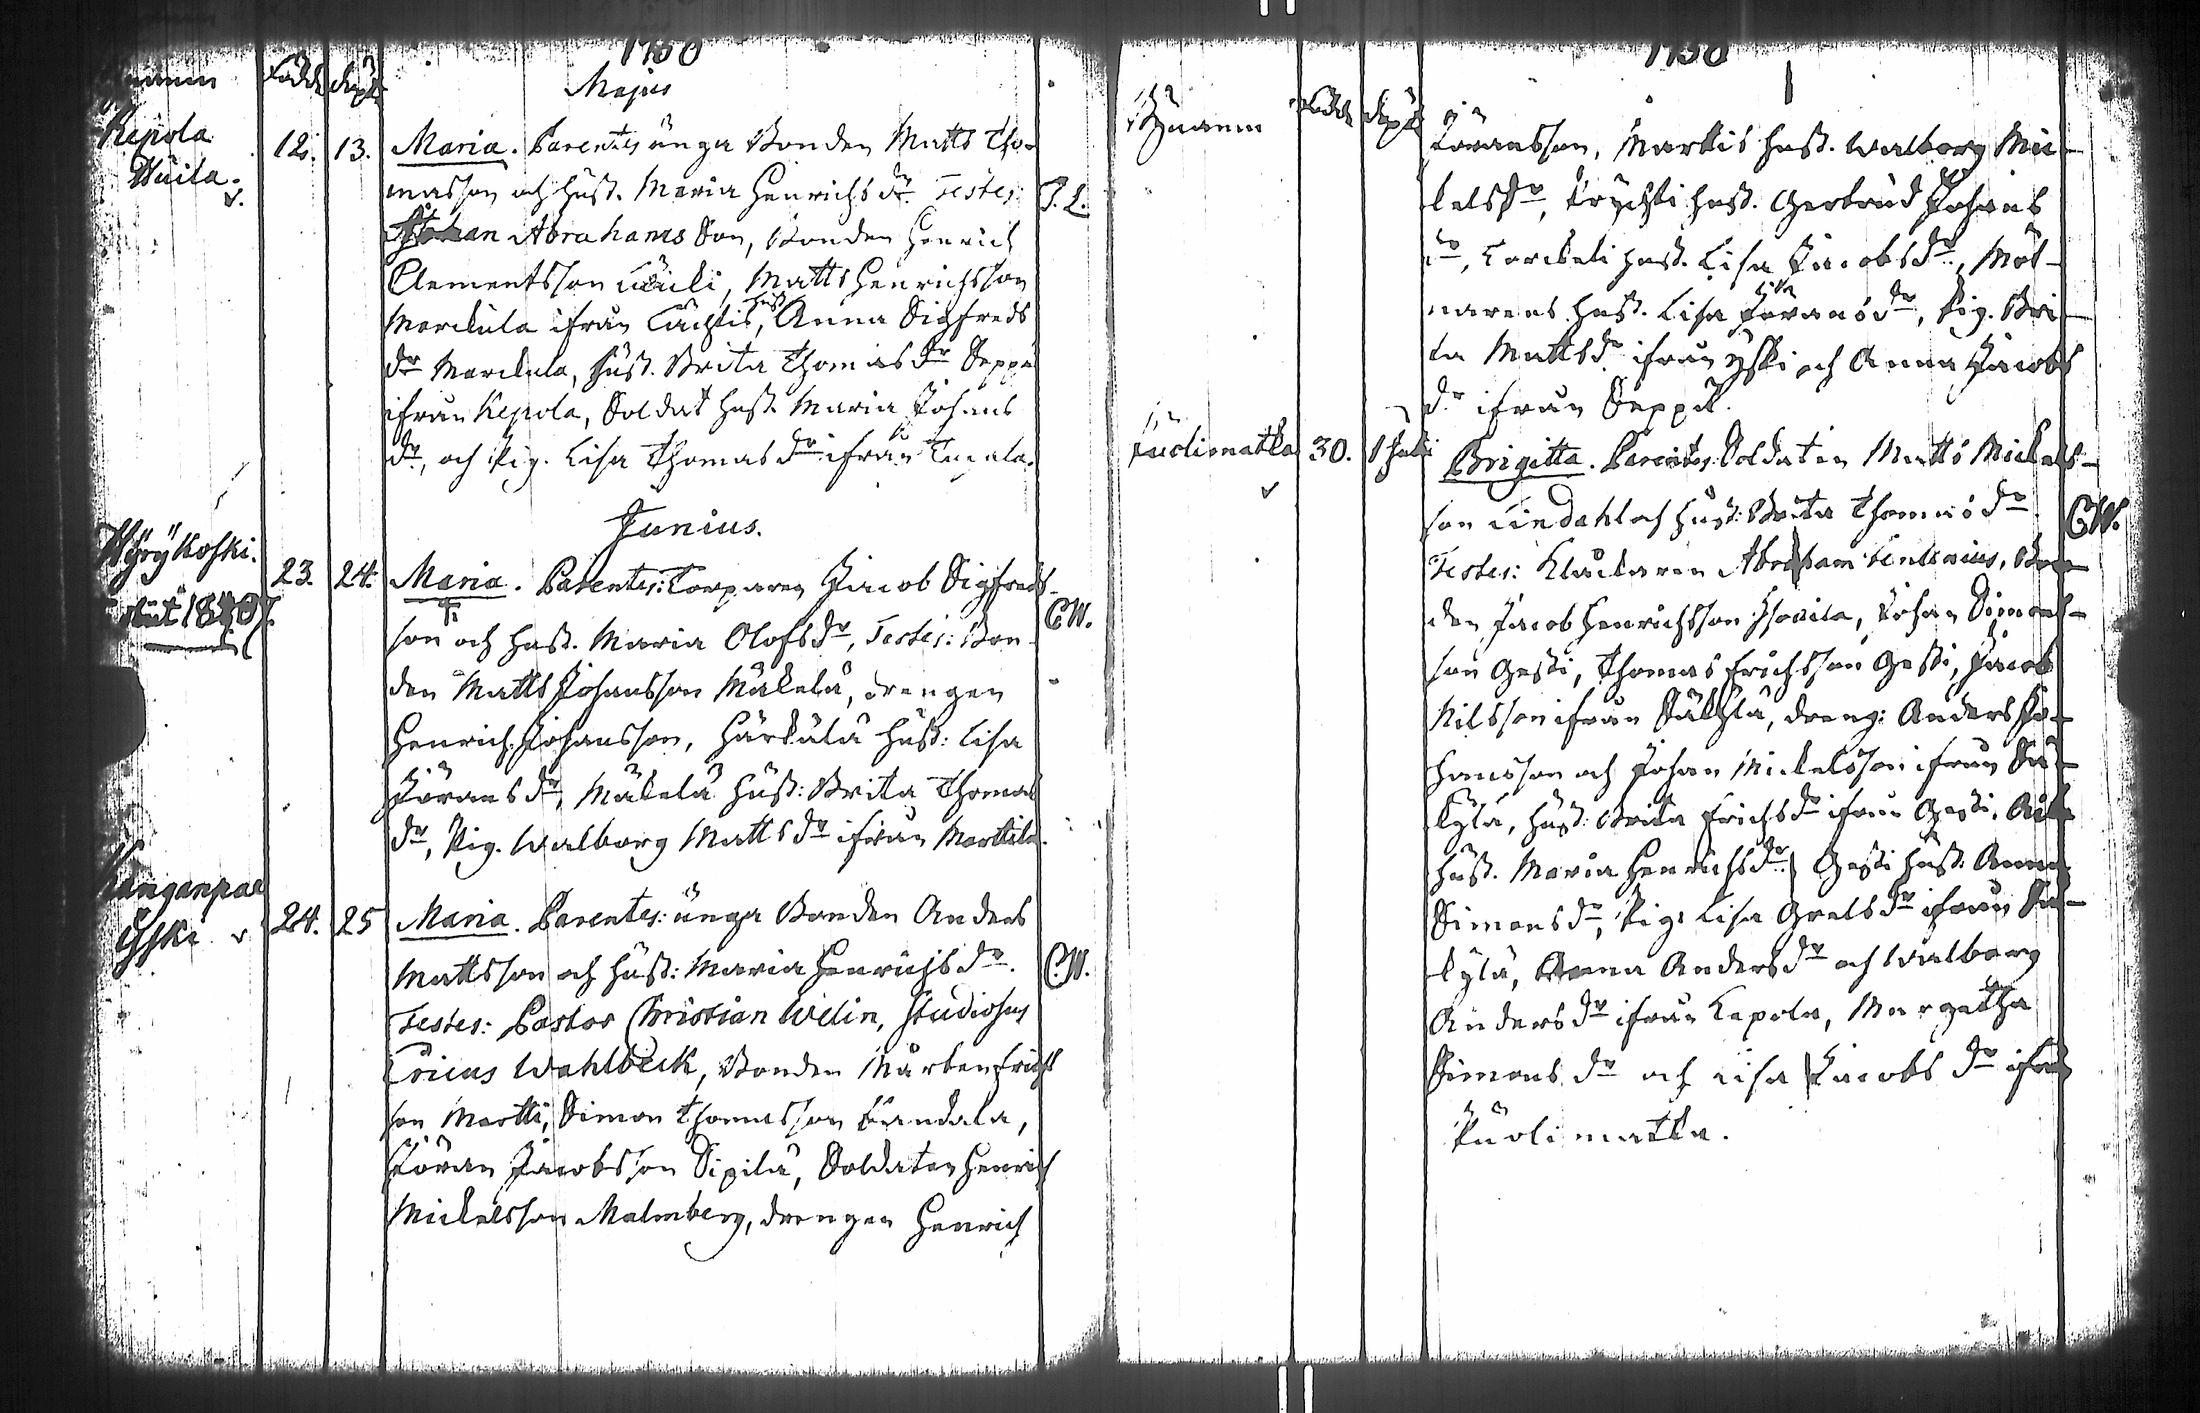 Majus
Kepola
Wuila.
12. 13. Maria. Parentes unga Bonden Matts Tho-
masson och hust. Maria Henrichs dr. Testes: J. L.
Johan Abrahams Son, Bonden Henrich
Clementsson, Matts Henrichsson
Marckula ifrån, hust. Anna Sigfreds
dr Marckula, hust. Brita Thomas dr Seppä
ifrån Kepola, Soldat hust. Maria Johans
dr, och Pig. Lisa Thomas dr ifrån
Junius.
Myrykoski.
23. 24. Maria. Parentes: Torparen Jacob Sigfreds-
son och hust. Maria Olofs dr, Testes: Bon- C.W.
den Matts Johansson Mäkelä, drengen
Henrich Johansson, Härkälä hust: Lisa
Jörans dr, Mäkelä hust: Brita Thomas
dr, Pig. Walborg Matts dr ifrån Marttila.
Kanganpää
Yski 24. 25 Maria. Parentes: unga Bonden Anders
Mattsson och hust: Maria Henrichs dr. C.W.
Testes: Pastor Christian Welin, Studiosus
Ericus Wahlbeck, Bonden Mårten Erichs
son Martti, Simon Thomasson Kandala,
Jöran Jacobsson Sipilä, Soldaten Henrich
Mickelsson Malmberg, drengen Henrich
Jöransson, Markis hust. Walborg Mi-
kels dr, hust. Gertrud Johans
dr, hust. Lisa Jacobs dr, Möl-
narens hust. Lisa Jörans dr, Pig. Bri-
ta Matts dr ifrån Yski och Anna Jacobs
dr ifrån Seppä.
Puolimatka 30. 1 Juli Brigitta. Parentes: Soldaten Matts Mickels-
son Lindahl och hust: Brita Thomas dr C.W.
Testes: Klåckaren Abraham, Bon-
den Jacob Henrichsson, Johan Simons-
son Gesti, Thomas Erichsson Gesti, Jacob
Nilsson ifrån, dreng: Anders Jo-
hansson och Johan Mickelsson ifrån
kylä, hust: Brita Erichs dr ifrån Gesti,
hust. Maria Henrichs dr, Gesti hust. Anna
Simons dr, Pig: Lisa Grels dr ifrån
kylä, Anna Anders dr och Walborg
Anders dr ifrån Kepola, Margetha
Simons dr och Lisa Jacobs dr ifrån
Puolimatka.